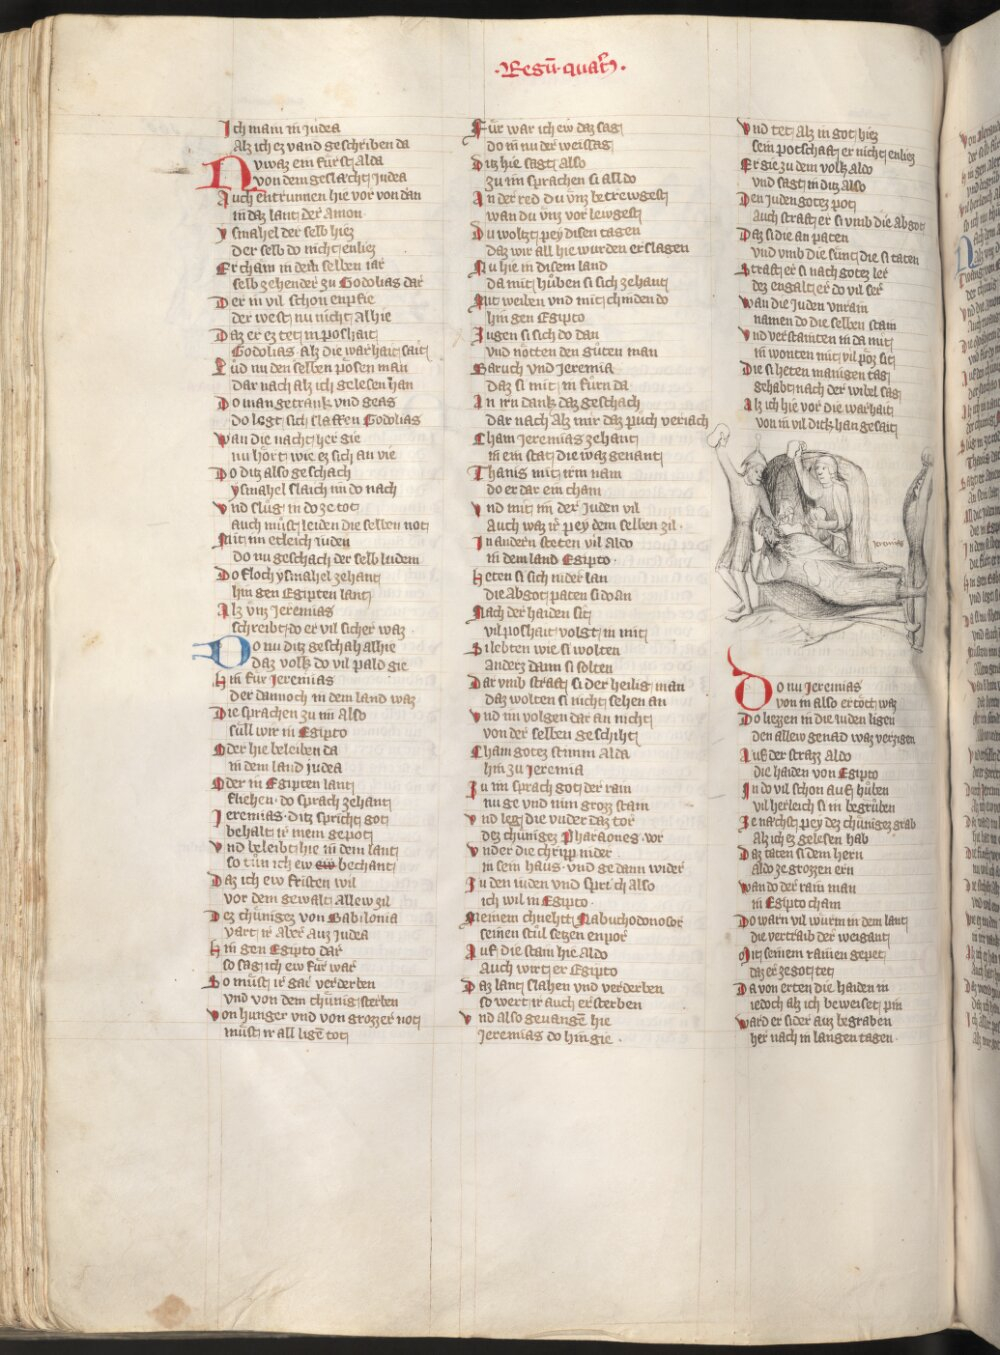 ·Regū·quartꝰ·
Ich main in Judea
Alz ich ez vand geschriben da
Nv waz ein fürst alda
von dem geslæcht Judea
Auch entrunnen hie vor von dan
in daz lant der Amon
Ysmahel der selb hiez
der selb do nicht enliez
Er cham in dem selben iar
selb zehender zu Godolias dar
Der in vil schon enpfie
der west nu nicht alhie
Daz er ez tet in poshait
Godolias alz die warhait sait
Lůd nu den selben pösen man
dar nach alz ich gelesen han
Do man getrank vnd geaz
do legt sich slaffen Godolias
Wan die nacht her gie
nu hört wie ez sich an vie
Do ditz also geschach
ysmahel slaich im do nach
Vnd slůg in do ze tot
auch můst leiden die selben not
Mit im etleich Juden
do nu geschach der selb ludem
Do floch ysmahel zehant
hin gen Egipten lant
Alz vnz Jeremias
schreibt do er vil sicher waz
Do nu ditz geschah alhie
daz volk do vil pald gie
Hin für Jeremias
der dannoch in dem land waz
Die sprachen zu im also
süll wir in Egipto
Oder hie beleiben da
in dem land Judea
Oder in Egipten lant
fliehen· do sprach zehant
Jeremias· ditz spricht got
behalt ir mein gepot
Vnd beleibt hie in dem lant
so tůn ich ew ew bechant
Daz ich ew fristen wil
vor dem gewalt allew zil
Dez chüniges von Babilonia
vart ir aber auz Judea
Hin gen Egipto dar
so sag ich ew für war
So můst ir gar verderben
vnd von dem chünig sterben
Von hunger vnd von grozzer not
můst ir all ligē tot
Für war ich ew daz sag
do in nu der weissag
Ditz hie sagt also
zu im sprachen si all do
An der red du vnz betrewgest
wan du vnz vor lewgest
Du woltzt pey disen tagen
daz wir all hie wurden erslagen
Nu hie in disem land
da mit hůben si sich zehant
Mit weiben vnd mit chinden do
hin gen Egipto
Zugen si sich do dan
vnd nötten den gůten man
Baruch vnd Jeremia
daz si mit in fůrn da
An irn dank daz geschach
dar nach Alz mir daz půch veriach
Cham Jeremias zehant
in ein stat die waz genant
Thanis mit irm nam
do er dar ein cham
Vnd mit im der Juden vil
Auch waz ir pey dem selben zil·
In andern steten vil aldo
in dem land Egipto·
Heten si sich nider lan
die Abgot paten si do an
Nach der haiden sit
vil poshait volgt in mit
Si lebten wie si wolten
anderz dann si solten
Dar vmb straft si der heilig man
daz wolten si nicht sehen an
Vnd im volgen dar an nicht
von der selben geschiht
Cham gotez stimm alda
hin zu Jeremia
Zu im sprach got der rain
nu ge vnd nim groz stain
Vnd leg die vnder daz tor
dez chüniges Pharaones vor
Vnder die chripp nider
in sein haus· vnd ge dann wider
Zu den iuden vnd sprich also
ich wil in Egipto·
Meinem chneht Nabuchodonosor
seinen stůl setzen enpor
Auf die stain hie aldo
Auch wirt er Egipto
Daz lant slahen vnd verderben
so wert ir auch ersterben
Vnd also geuangē hie
Jeremias do hin gie·
Vnd tet alz in got hiez
sein potschaft er nicht enliez
Er gie zu dem volk aldo
vnd sagt in ditz also
Den juden gotez pot
Auch straft er si vmb die Abgot
Daz si die an paten
vnd vmb die sünt die si taten
Straft er si nach gotez ler
dez engalt er do vil ser
Wan die Juden vnrain
namen do die selben stain
Vnd verstainten in da mit
in wonten mit vil pöz sit
Die si heten manigen tag
gehabt nach der wibel sag
Alz ich hie vor die warhait
von in vil dick han gesait
Jeremias
Do nu Jeremias
von in also ertöt waz
Do liezzen in die iuden ligen
den allew genad waz verzigen
Auf der strazz aldo
die haiden von Egipto
In do vil schon auf hůben
vil herleich si in begrůben
Ze næchst pey dez chüniges grab
Alz ich ez gelesen hab
Daz taten si dem hern
aldo ze grozzen ern
Wan do der rain man
in Egipto cham
Do warn vil würm in dem lant
die vertraib der weigant
Mit seinem rainen gepet
daz er ze got tet
Da von erten die haiden in
iedoch alz ich beweiset pin
Ward er sider auz begraben
her nach in langen tagen·